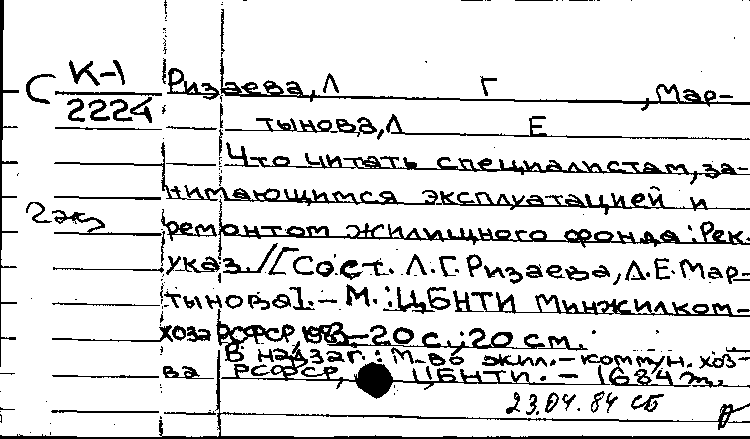 С К-1
2224
2 экз
Ризаева, Л Г , Мар-
тынова, Л Е
Что читать специалистам, за-
нимающимся эксплуатацией и
ремонтом жилищного фонда: Рек.
указ. /[Сост. Л.Г. Ризаева, Л.Е. Мар-
тынова]. – М.: ЦБНТИ Минжилком-
хоза РСФСР, 1983. – 20 с.; 20 см.
В надзаг.: М-во жил.-коммун. хоз-
ва РСФСР, ЦБНТИ. – 1684 т.
23.04.84 СБ